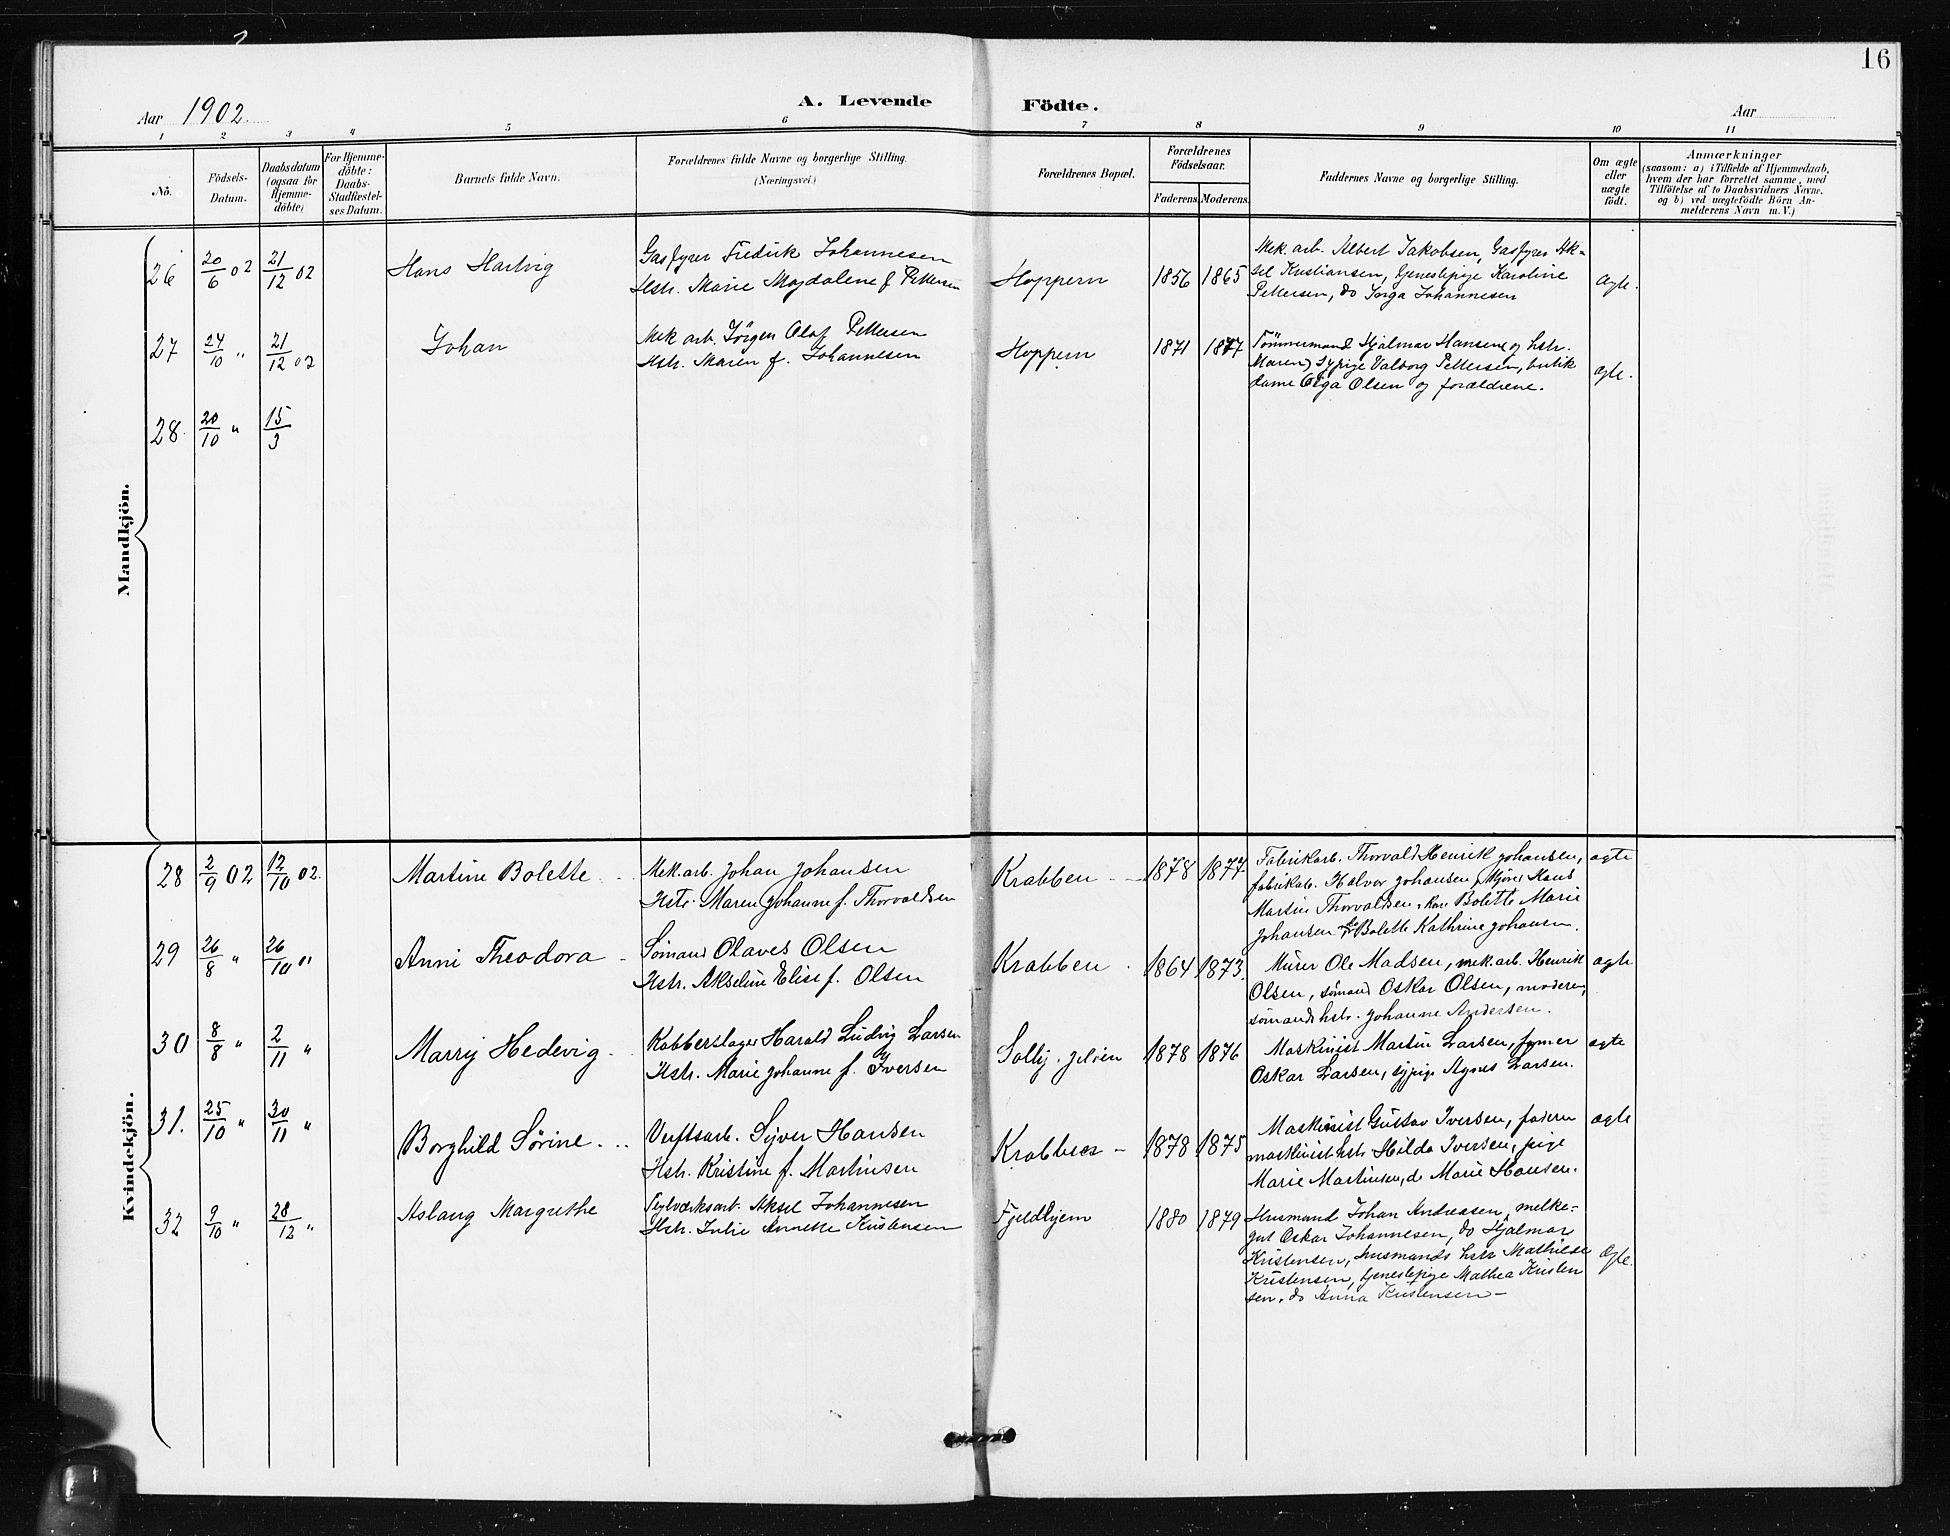 16
Aar 1902.
A. Levende Födte.
Aar
1 2 3 4 5 6 7 8 9 10 11
No.
Födsels-Datum.
Daabsdatum (ogsaa for Hjemme-döbte)
For Hjemme-döbte: Daabs-Stadfestel-ses Datum.
Barnets fulde Navn.
Forældrenes fulde Navne og borgerlige Stilling.
(Næringsvei.)
Forældrenes Bopæl.
Forældrenes Födselsaar.
Faderens. Moderens.
Faddernes Navne og borgerlige Stilling.
Om ægte eller uægte födt.
Anmærkninger
(saasom: a) i Tilfælde af Hjemmedaab,
hvem der har forrettet samme, med
Tilföielse af to Daabsvidners Navne.
og b) ved uægtefödte Börn An-
melderens Navn m. V.)
Mandkjön.
26 20/6 02 21/12 02 Hans Hartvig
Gasfyrer Fredrik Johannesen
Hstr. Marie Magdalene f. Pettersen
Hoppern 1856 1865
Mek. arb. Albert Jakobsen, Gasfyrer Ak-
sel Kristiansen, tjenestepige Karoline
Pettersen, do Inga Johannesen
ægte.
27 24/10 " 21/12 02 Johan
Mek arb. Jörgen Olaf Pettersen
Hstr. Maren f. Johannesen
Hoppern 1871 1877
Tömmermand Hjalmar Hansen og hstr.
Maren, Sypige Valborg Pettersen, butik
dame Olga Olsen og forældrene.
ægte.
28. 20/10 " 15/3
Kvindekjön.
28 2/9 02 12/10 02. Martine Bolette
Mek. arb. Johan Johansen
Hstr. Maren Johanne f. Thorvaldsen
Krabben 1878 1877
Fabrikarb. Thorvald Henrik Johansen,
fabrikab. Halvor Johansen, Hans
Martin Thorvaldsen, Bolette Marie
Johansen Bolette Kathrine Johansen.
ægte
29 26/8 " 26/10 " Anni Theodora
Sömand Olaves Olsen
Hstr. Akseline Elise f. Olsen
Krabben 1864 1873.
Murer Ole Madsen, mek. arb. Henrik
Olsen, sömand Oskar Olsen, moderen,
sömands hstr. Johanne Andersen.
ægte
30 8/8 " 2/11 " Marry Hedevig
Kobberslager Harald Ludvig Larsen
Hstr. Marie Johanne f. Iversen
Solby. Jelöen 1878 1876
Maskinist Martin Larsen, fyrer
Oskar Larsen, sypige Agnes Larsen.
ægte
31. 25/10 " 30/11 " Borghild Sörine.
Verftsarb. Syver Hansen
Hstr. Kristine f. Martinsen
Krabben 1878 1875
Maskinist Gustav Iversen, faderen
maskinist hstr Hilda Iversen, pige
Marie Martinsen, d. Marie Hansen.
ægte
32 9/10 " 28/12 " Aslaug Margrethe
Teglværksarb. Aksel Johannesen
Hstr. Julie Annette Kristensen
Fjeldhjem 1880 1879
Husmand Johan Andreasen, melke-
gut Oskar Johannesen, do Hjalmar
Kristensen, husmands hstr Mathilde
Kristensen, tjenestepige Mathea Kristen
sen, do Anna Kristensen -
Ægte.